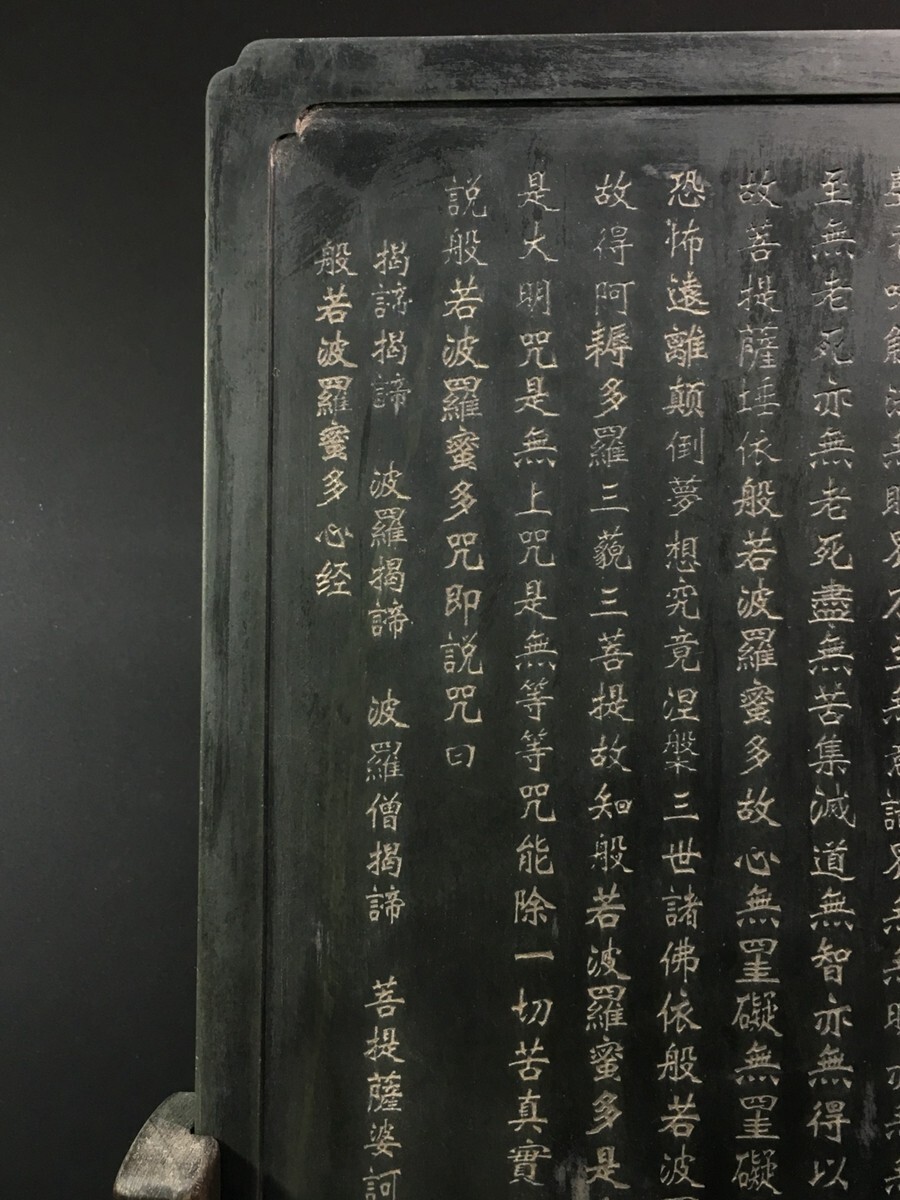 至無老死亦無老死盡無苦集滅道無智亦無得以
故菩提薩埵依般若波羅蜜多故心無罣礙無罣礙
恐怖遠離顛倒夢想究竟涅槃三世諸佛依般若波
故得阿耨多羅三藐三菩提故知般若波羅蜜多是
是大明咒是無上咒是無等等咒能除一切苦真實
説般若波羅蜜多咒即説咒曰
揭諦揭諦 波羅揭諦 波羅僧揭諦 菩提薩婆訶
般若波羅蜜多心经